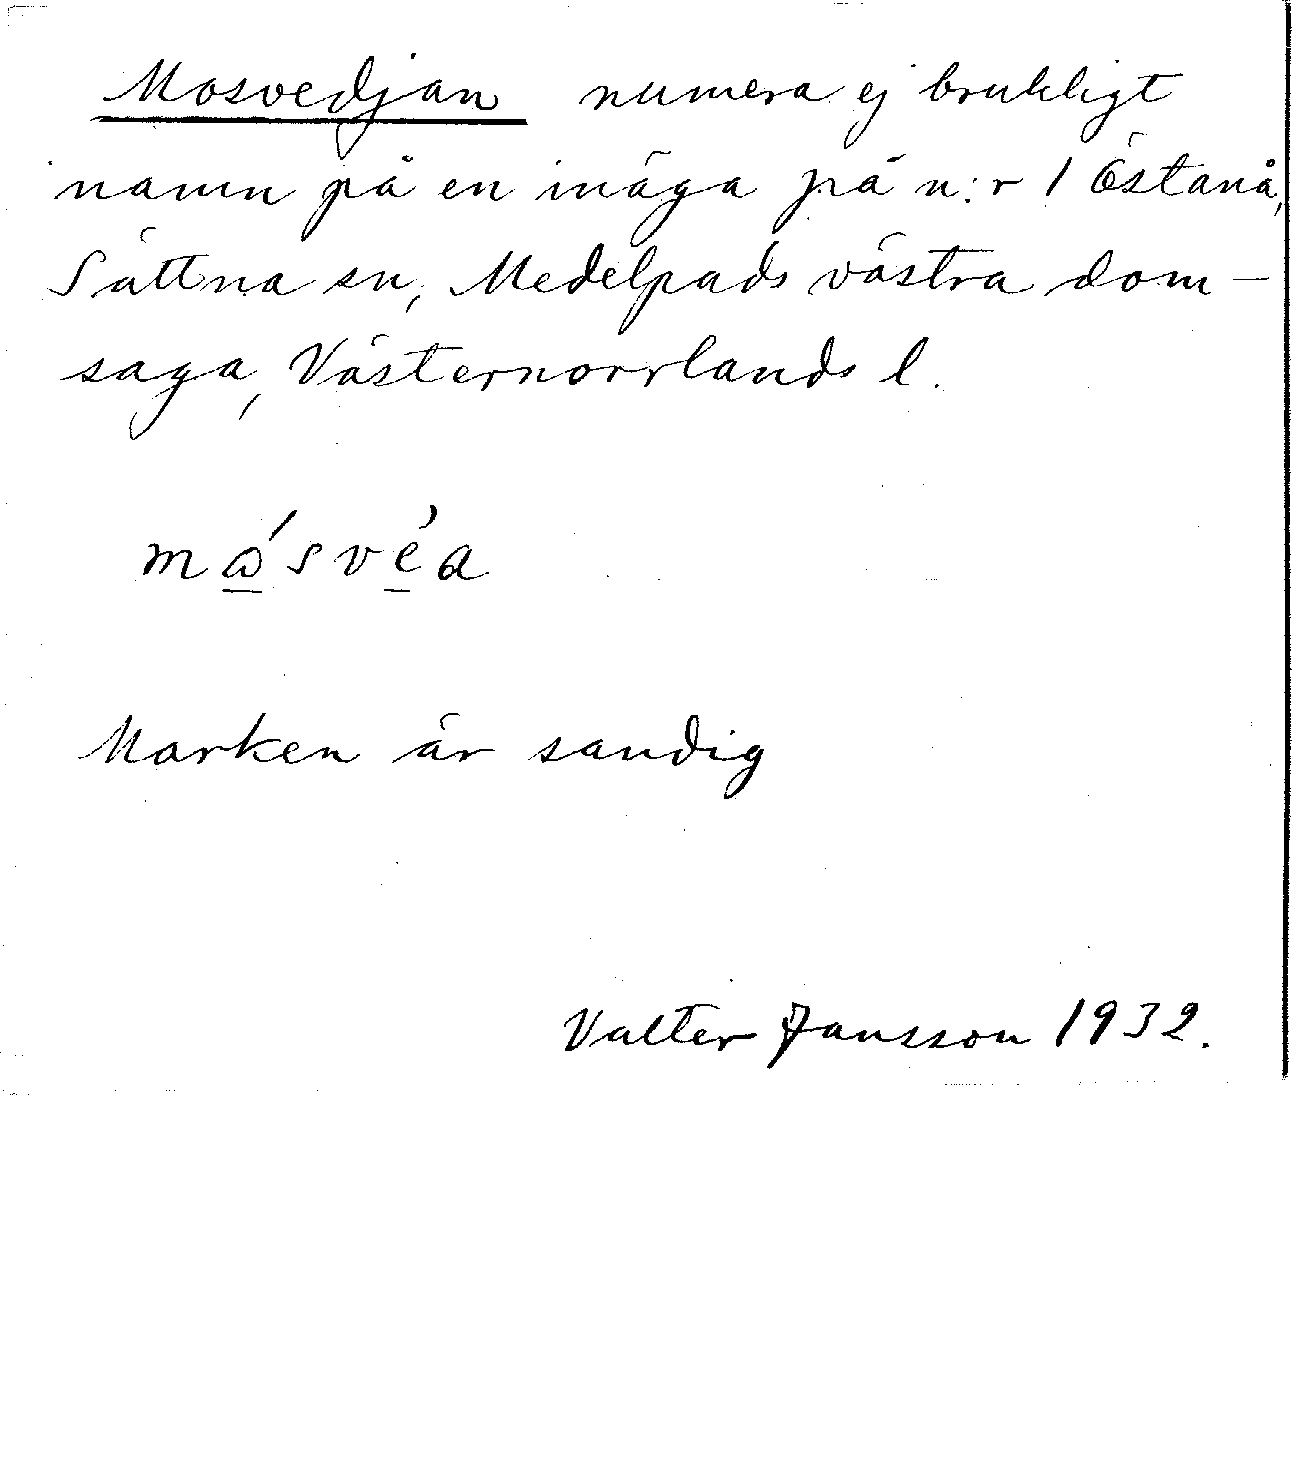 Mosvedjan numera ej brukligt
namn på en inäga på n:r 1 Östanå,
Sättna sn, Medelpads västra dom-
saga, Västernorrlands l.
Marken är sandig
Valter Jansson 1932.